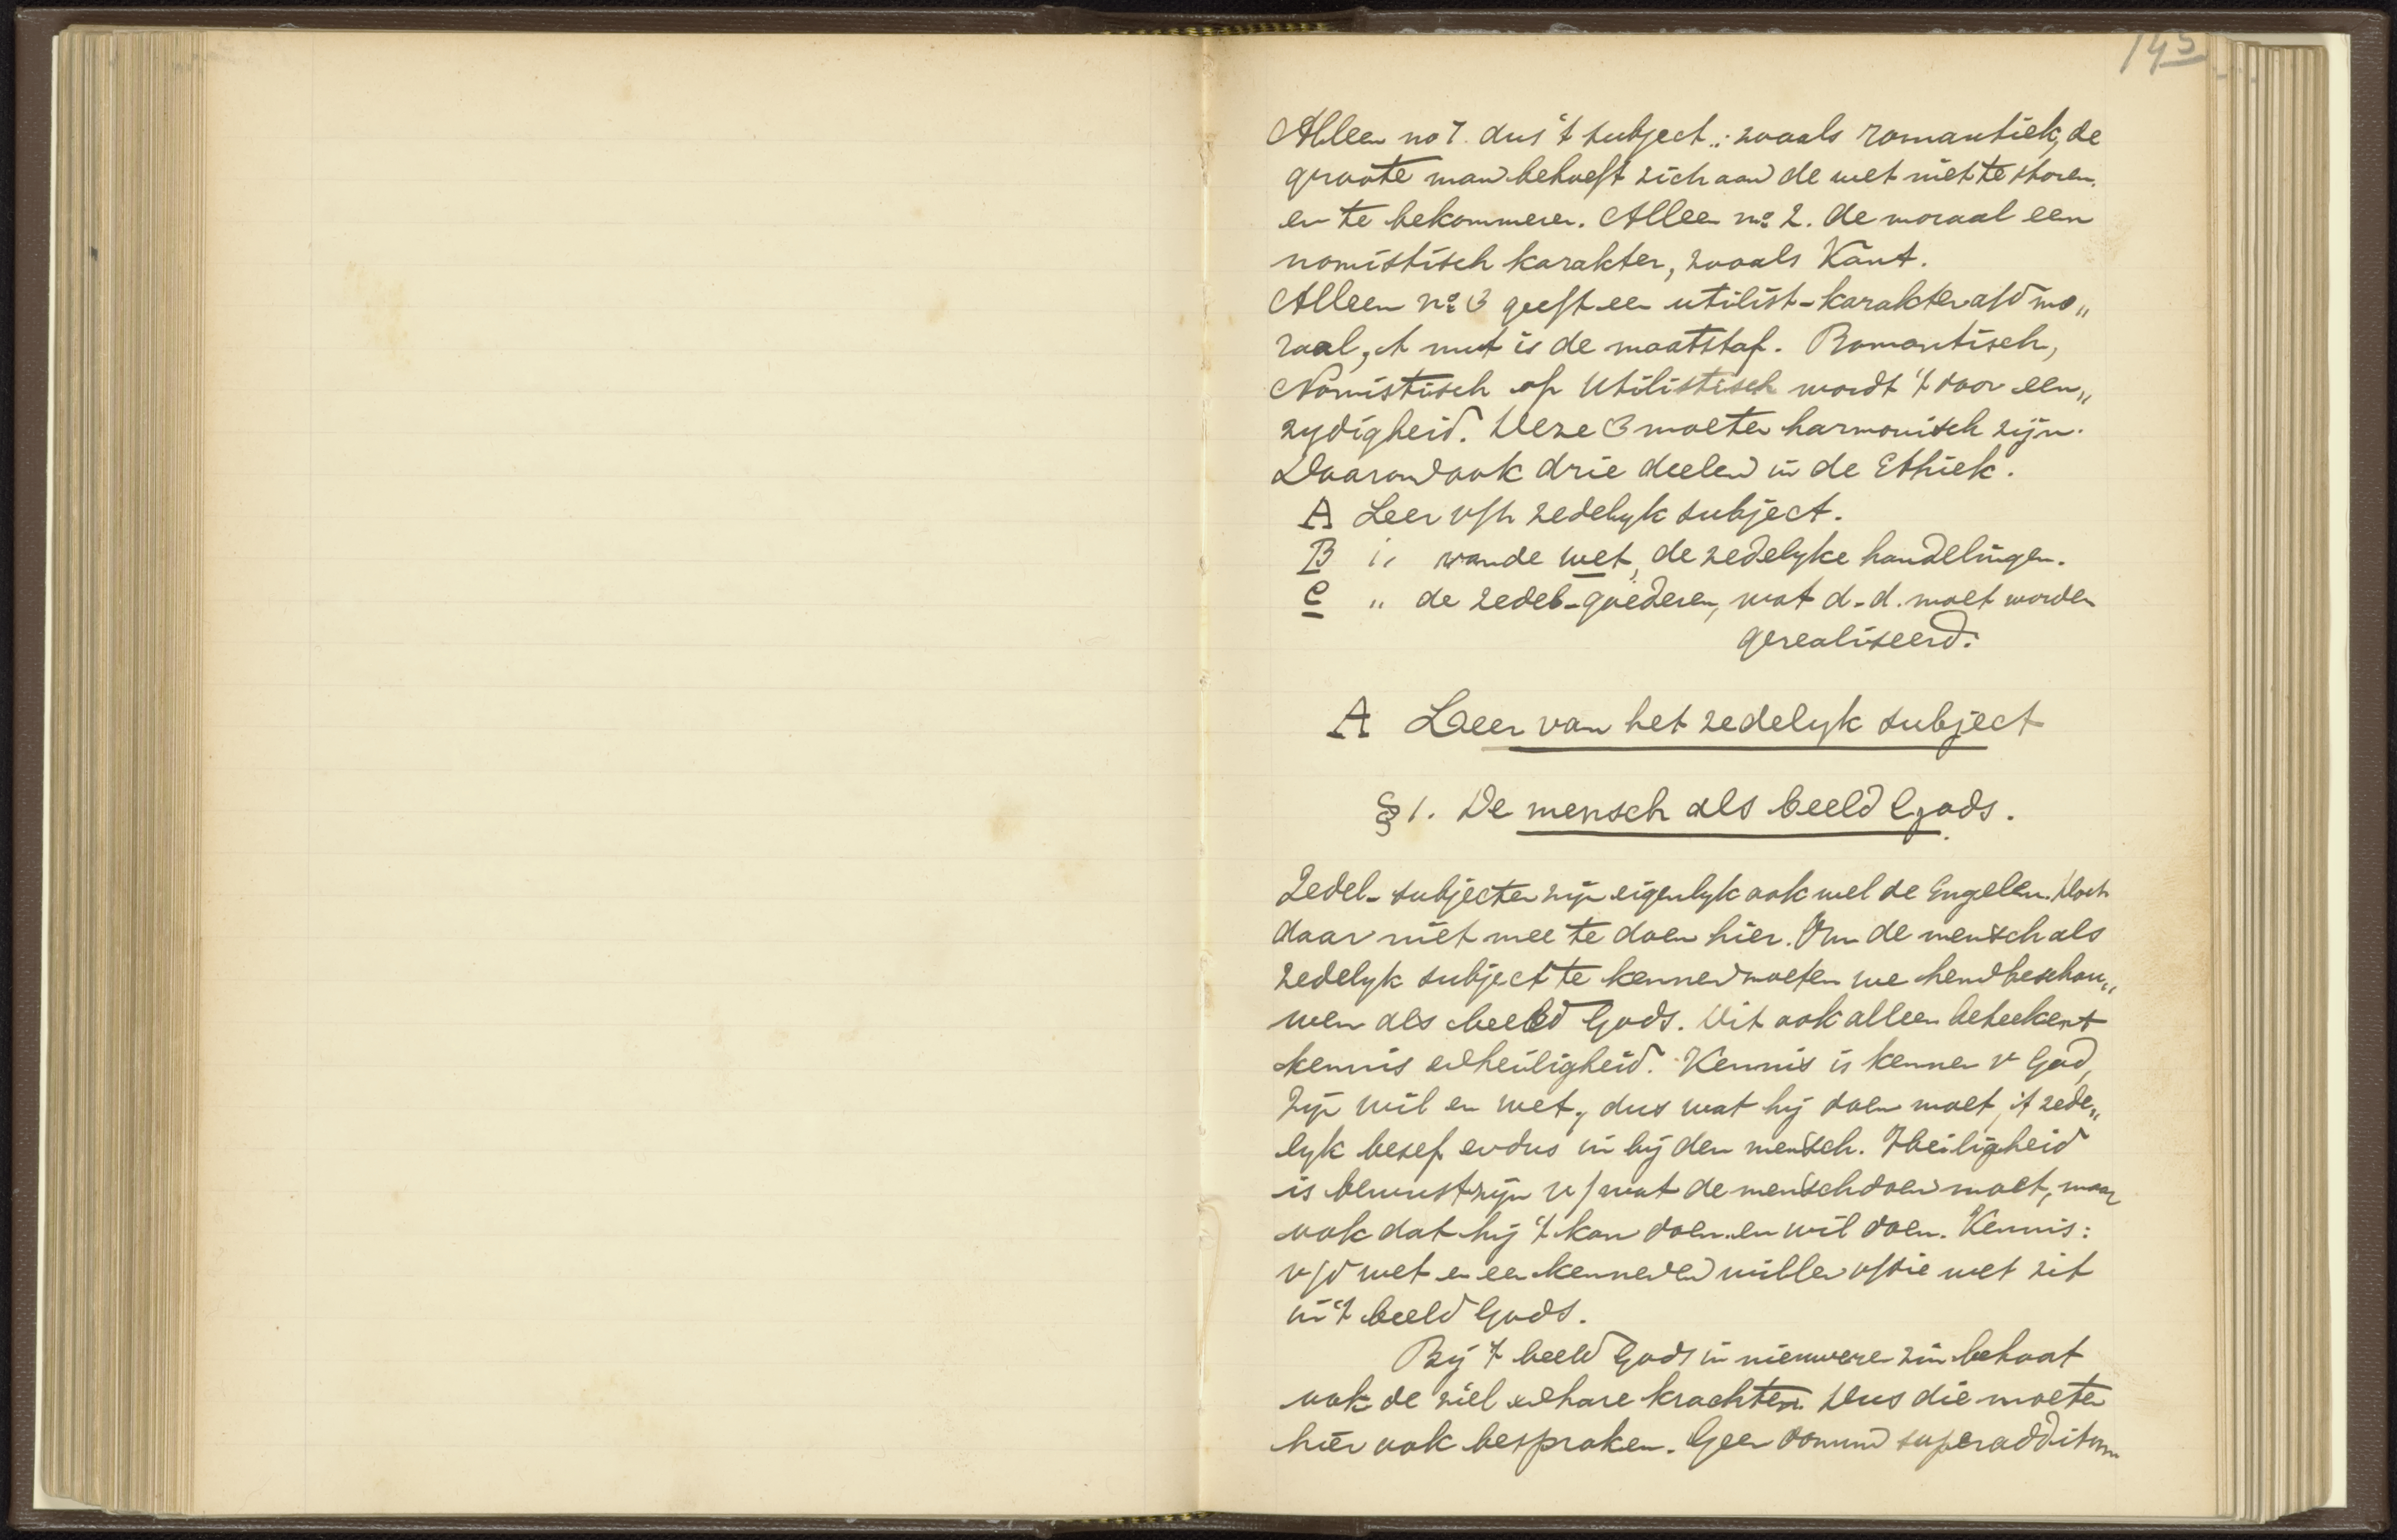 145
Alleen no 1. dus 't subject.: zooals romantiek, de
groote man behoeft zich aan de wet niet te storen.
en te bekommeren. Alleen no 2. de moraal een
nomistisch karakter, zooals Kant.
Alleen no 3 geeft een utilist-karakter a/d mo„
raal, 't nut is de maatstaf. Romantisch,
Nomistisch of Utilistisch wordt 't door een„
zydigheid. Deze 3 moeten harmonisch zijn.
Daarom ook drie deelen in de Ethiek.
A Leer v/h zedelyk subject.
B „ van de wet, de zedelyke handelingen.
C „ de zedel-goederen, wat d-d. moet worden
gerealiseerd.
A Leer van het zedelyk subject
§ 1. De mensch als beeld Gods.
Zedel- subjecten zijn eigenlyk ook wel de Engelen. Doch
daar niet mee te doen hier. Om de mensch als
zedelyk subject te kennen moeten we hem beschou„
wen als beeld Gods. Dit ook alleen beteekent
kennis en heiligheid. Kennis is kennen v God,
Zijn wil en wet, dus wat hij doen moet, 't zede„
lyk besef en dus in bij den mensch. Heiligheid
is bewustzijn v/ wat de mensch doen moet, maar
ook dat hij 't kan doen en wil doen. Kennis:
v/d wet en een kennen en willen v/die wet zit
in 't beeld Gods.
Bij 't beeld Gods in nieuwere zin behoort
ook de ziel en hare krachten. Dus die moeten
hier ook besproken. Geen donum superadditum